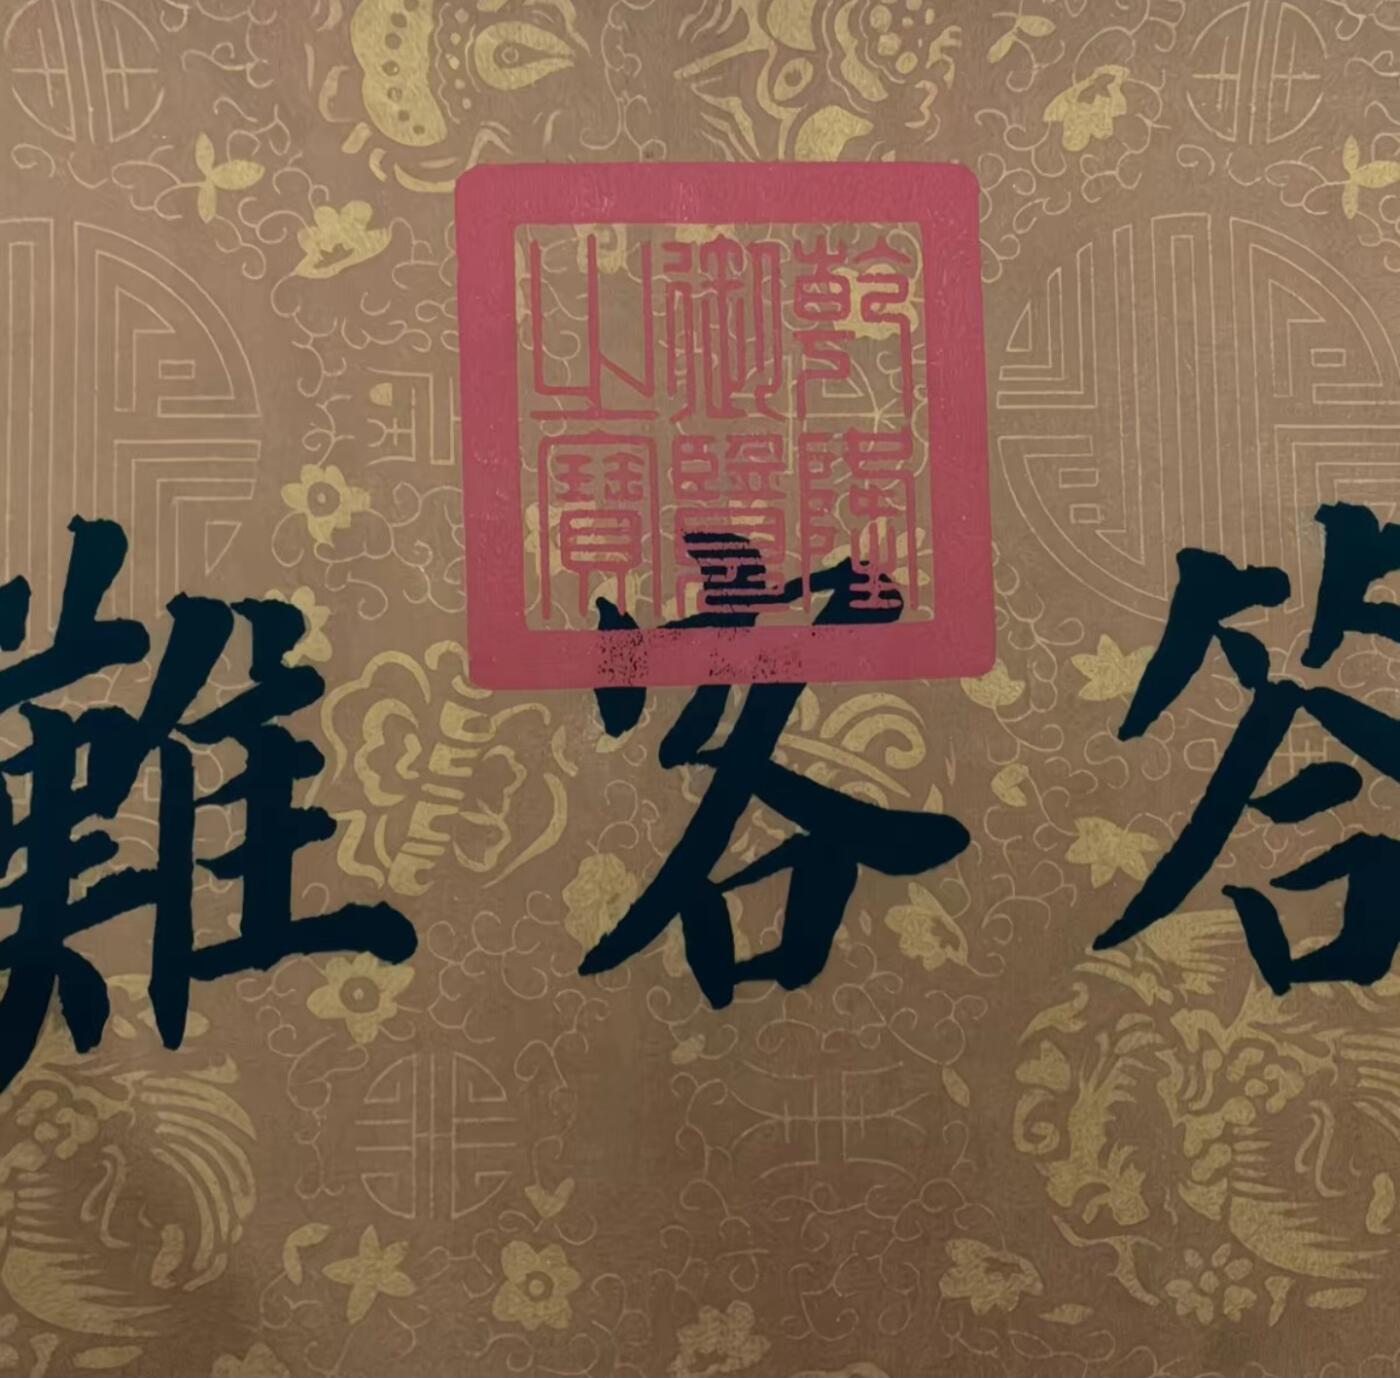 答客難
乾隆御覽之寶